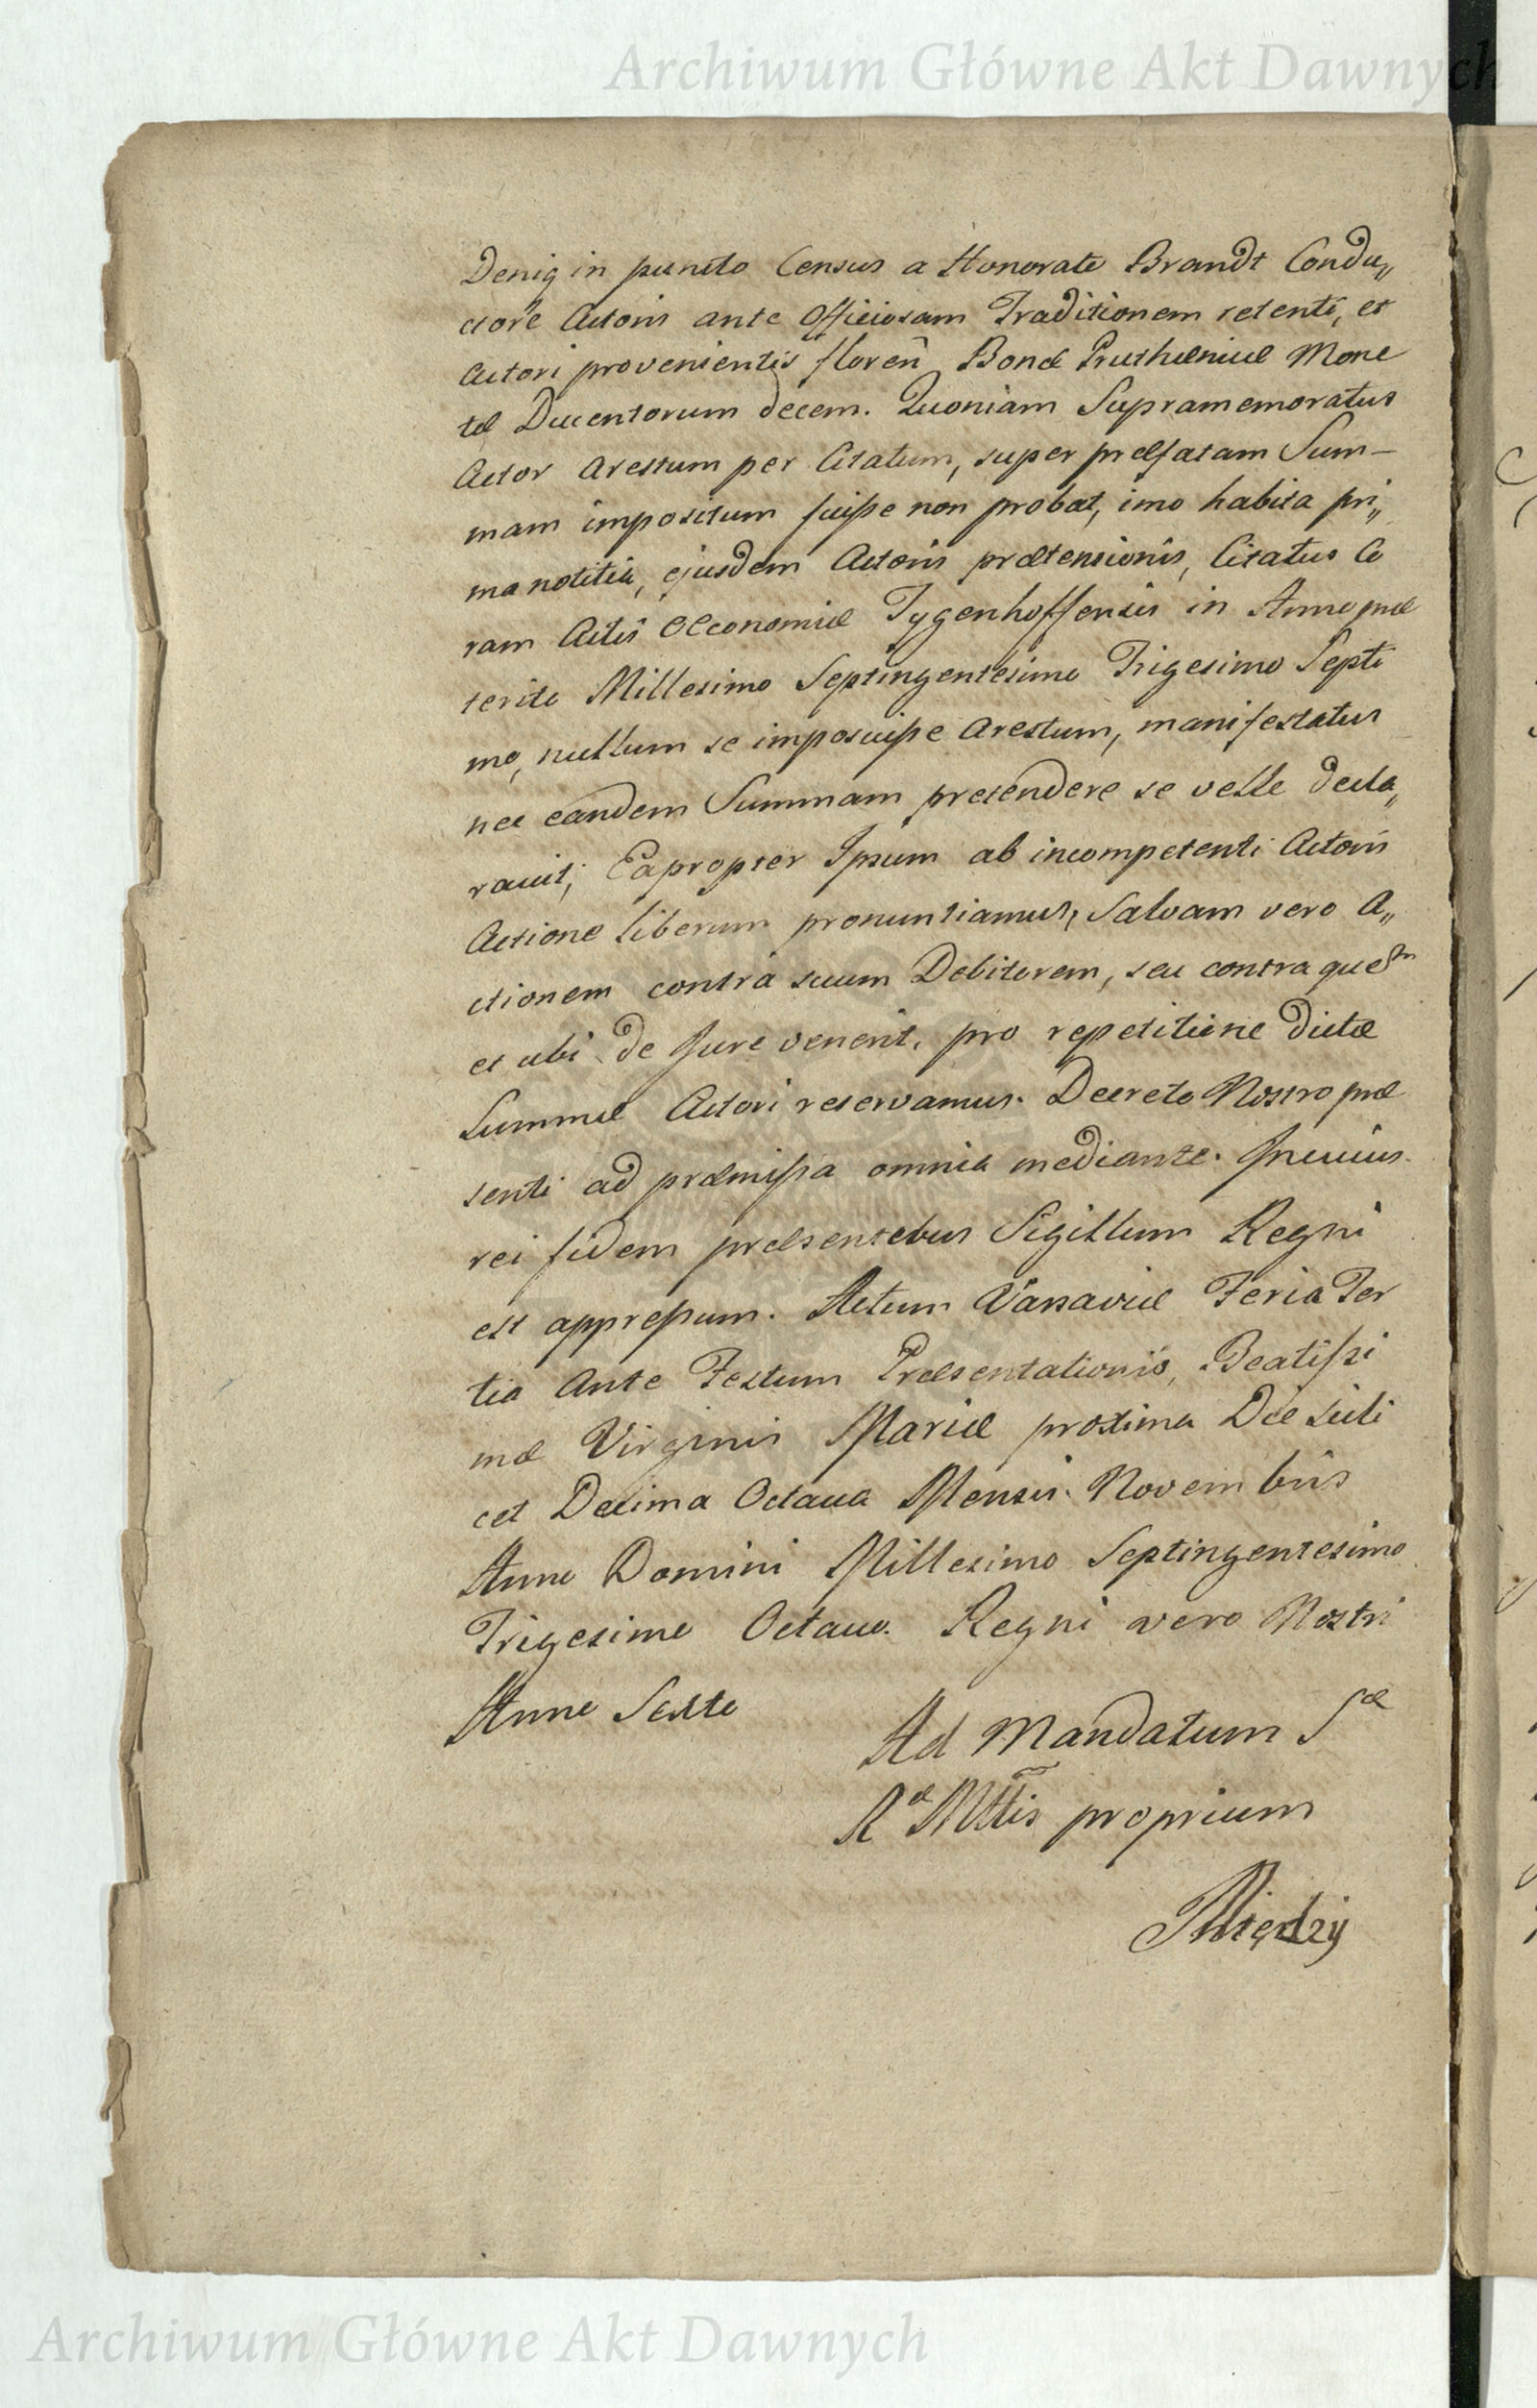 Archiwum Główne Akt Dawnych
Deniq in puncto Census a Honorate Brandt Condu„
ctore Actoris ante Officiosam Traditionem retenti, et
Actori provenientis floren Bonæ Pruthenicæ Mone
tæ Ducentorum decem. Quoniam Supramemoratus
Actor Arestum per Citatum, super præfatam Sum-
mam impositum fuisse non probat, imo habita pri„
ma notitia, ejusdem Actoris prætensionis, Citatus Co
ram Actis Œconomiæ Tygenhoffensis in Anno præ
terito Millesimo Septingentesimo Trigesimo Septi
mo, nullum se imposuisse Arestum, manifestatus
nec eandem Summam prætendere se velle decla„
ravit; Eapropter Ipsum ab incompetenti Actoris
Actione liberum pronuntiamus, Salvam vero A„
ctionem contra suum Debitorem, seu contra quem
et ubi de Jure venerit, pro repetitione dictæ
Summæ Actori reservamus. Decreto Nostro præ
senti ad præmissa omnia mediante. In cuius
rei fidem præsentebus Sigillum Regni
est appressum. Actum Varsaviæ Feria Ter
tia Ante Festum Præsentationis, Beatissi
mæ Virginis Mariæ proxima Die scili
cet Decima Octava Mensis Novembris
Anno Domini Millesimo Septingentesimo
Trigesimo Octavo. Regni vero Nostri
Anno Sexto
Ad Mandatum Sæ
Ræ Mttis proprium
Archiwum Główne Akt Dawnych